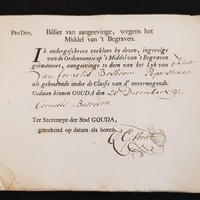 Pro Deo. Billiet van aangeevinge, wegens het
Middel van 't Begraven.
Ik ondergeschreve verklare by dezen, ingevolge
van de Ordonnantie op 't Middel van 't Begraven
geëmaneert, aangeevinge te doen van het Lyk van
Jan Cornelis Bosboom
als gehoorende onder de Classis van d' onvermogende.
Gedaan binnen GOUDA den 20 December
Cornelis Bosboom
Ter Secretarye der Stad GOUDA,
geteekend op datum als boven.